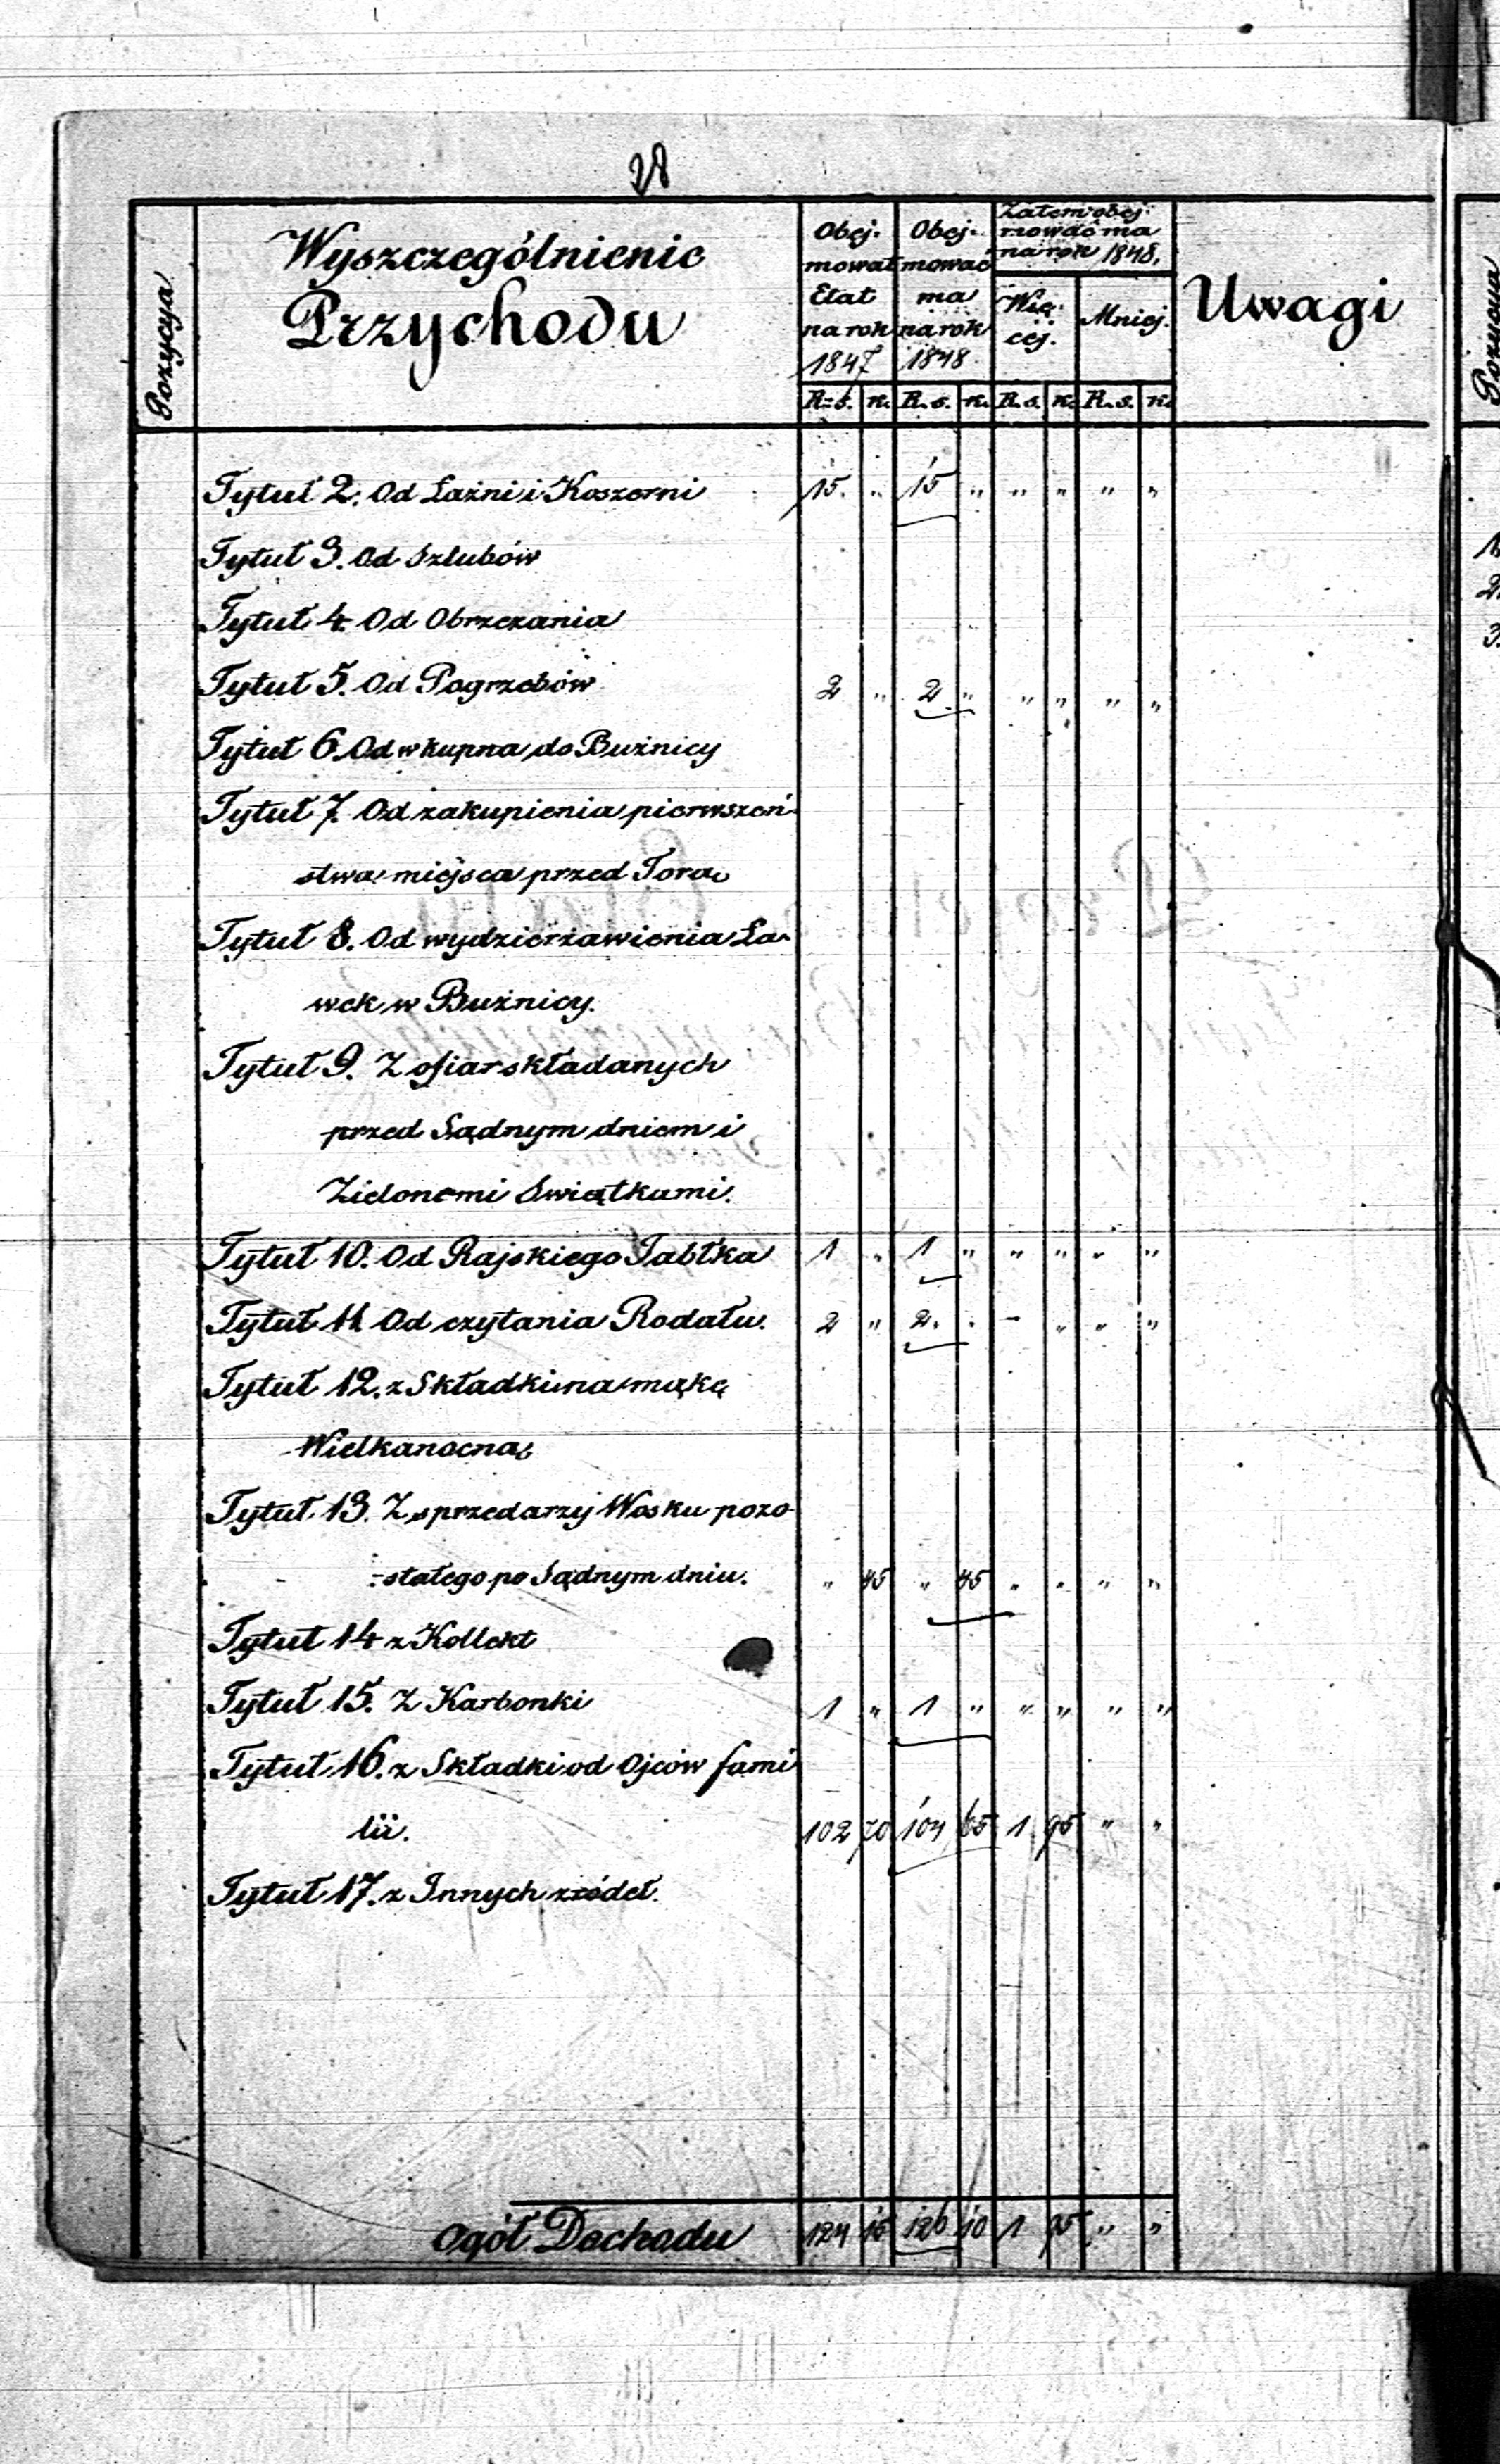 28
Pozycya
Wyszczególnienie
Przychodu
Obej-
mował
Etat
na rok
1847
Obej-
mować
ma
na rok
1848
Zatem obej-
mować ma
na rok 1848.
Wię-
cej.
Mniej.
Uwagi
R=s. k. R. s. k. R. s. k. R. s. k.
Tytuł 2. Od Łaźni i Koszerni 15. " 15 " " " " "
Tytuł 3. Od Szlubów
Tytuł 4. Od Obrzezania
Tytuł 5. Od Pogrzebów 2 " 2 " " " " "
Tytuł 6. Od wkupna do Bużnicy
Tytuł 7. Od zakupienia pierwszeń-
stwa miejsca przed Torą
Tytuł 8. Od wydzierzawienia Ła-
wek w Bużnicy.
Tytuł 9. Z ofiar składanych
przed Sądnym dniem i
Zielonemi Swiątkami.
Tytuł 10. Od Rajskiego Jabłka 1 " 1 " " " " "
Tytuł 11. Od czytania Rodału. 2 " 2. " - " " "
Tytuł 12. z Składki na mąkę
Wielkanocną
Tytuł 13. Z sprzedarzy Wosku pozo-
-stałego po Sądnym dniu. " 45 " 45 " " " "
Tytuł 14 z Kollekt
Tytuł 15. Z Karbonki 1 " 1 " " " " "
Tytuł 16. z Składki od Ojców fami
lii. 102 70 104 65 1 95 " "
Tytuł 17. z Innych zródeł.
Ogół Dochodu 124 15 126 10 1 95 " "
Pozycya
1
2.
3.